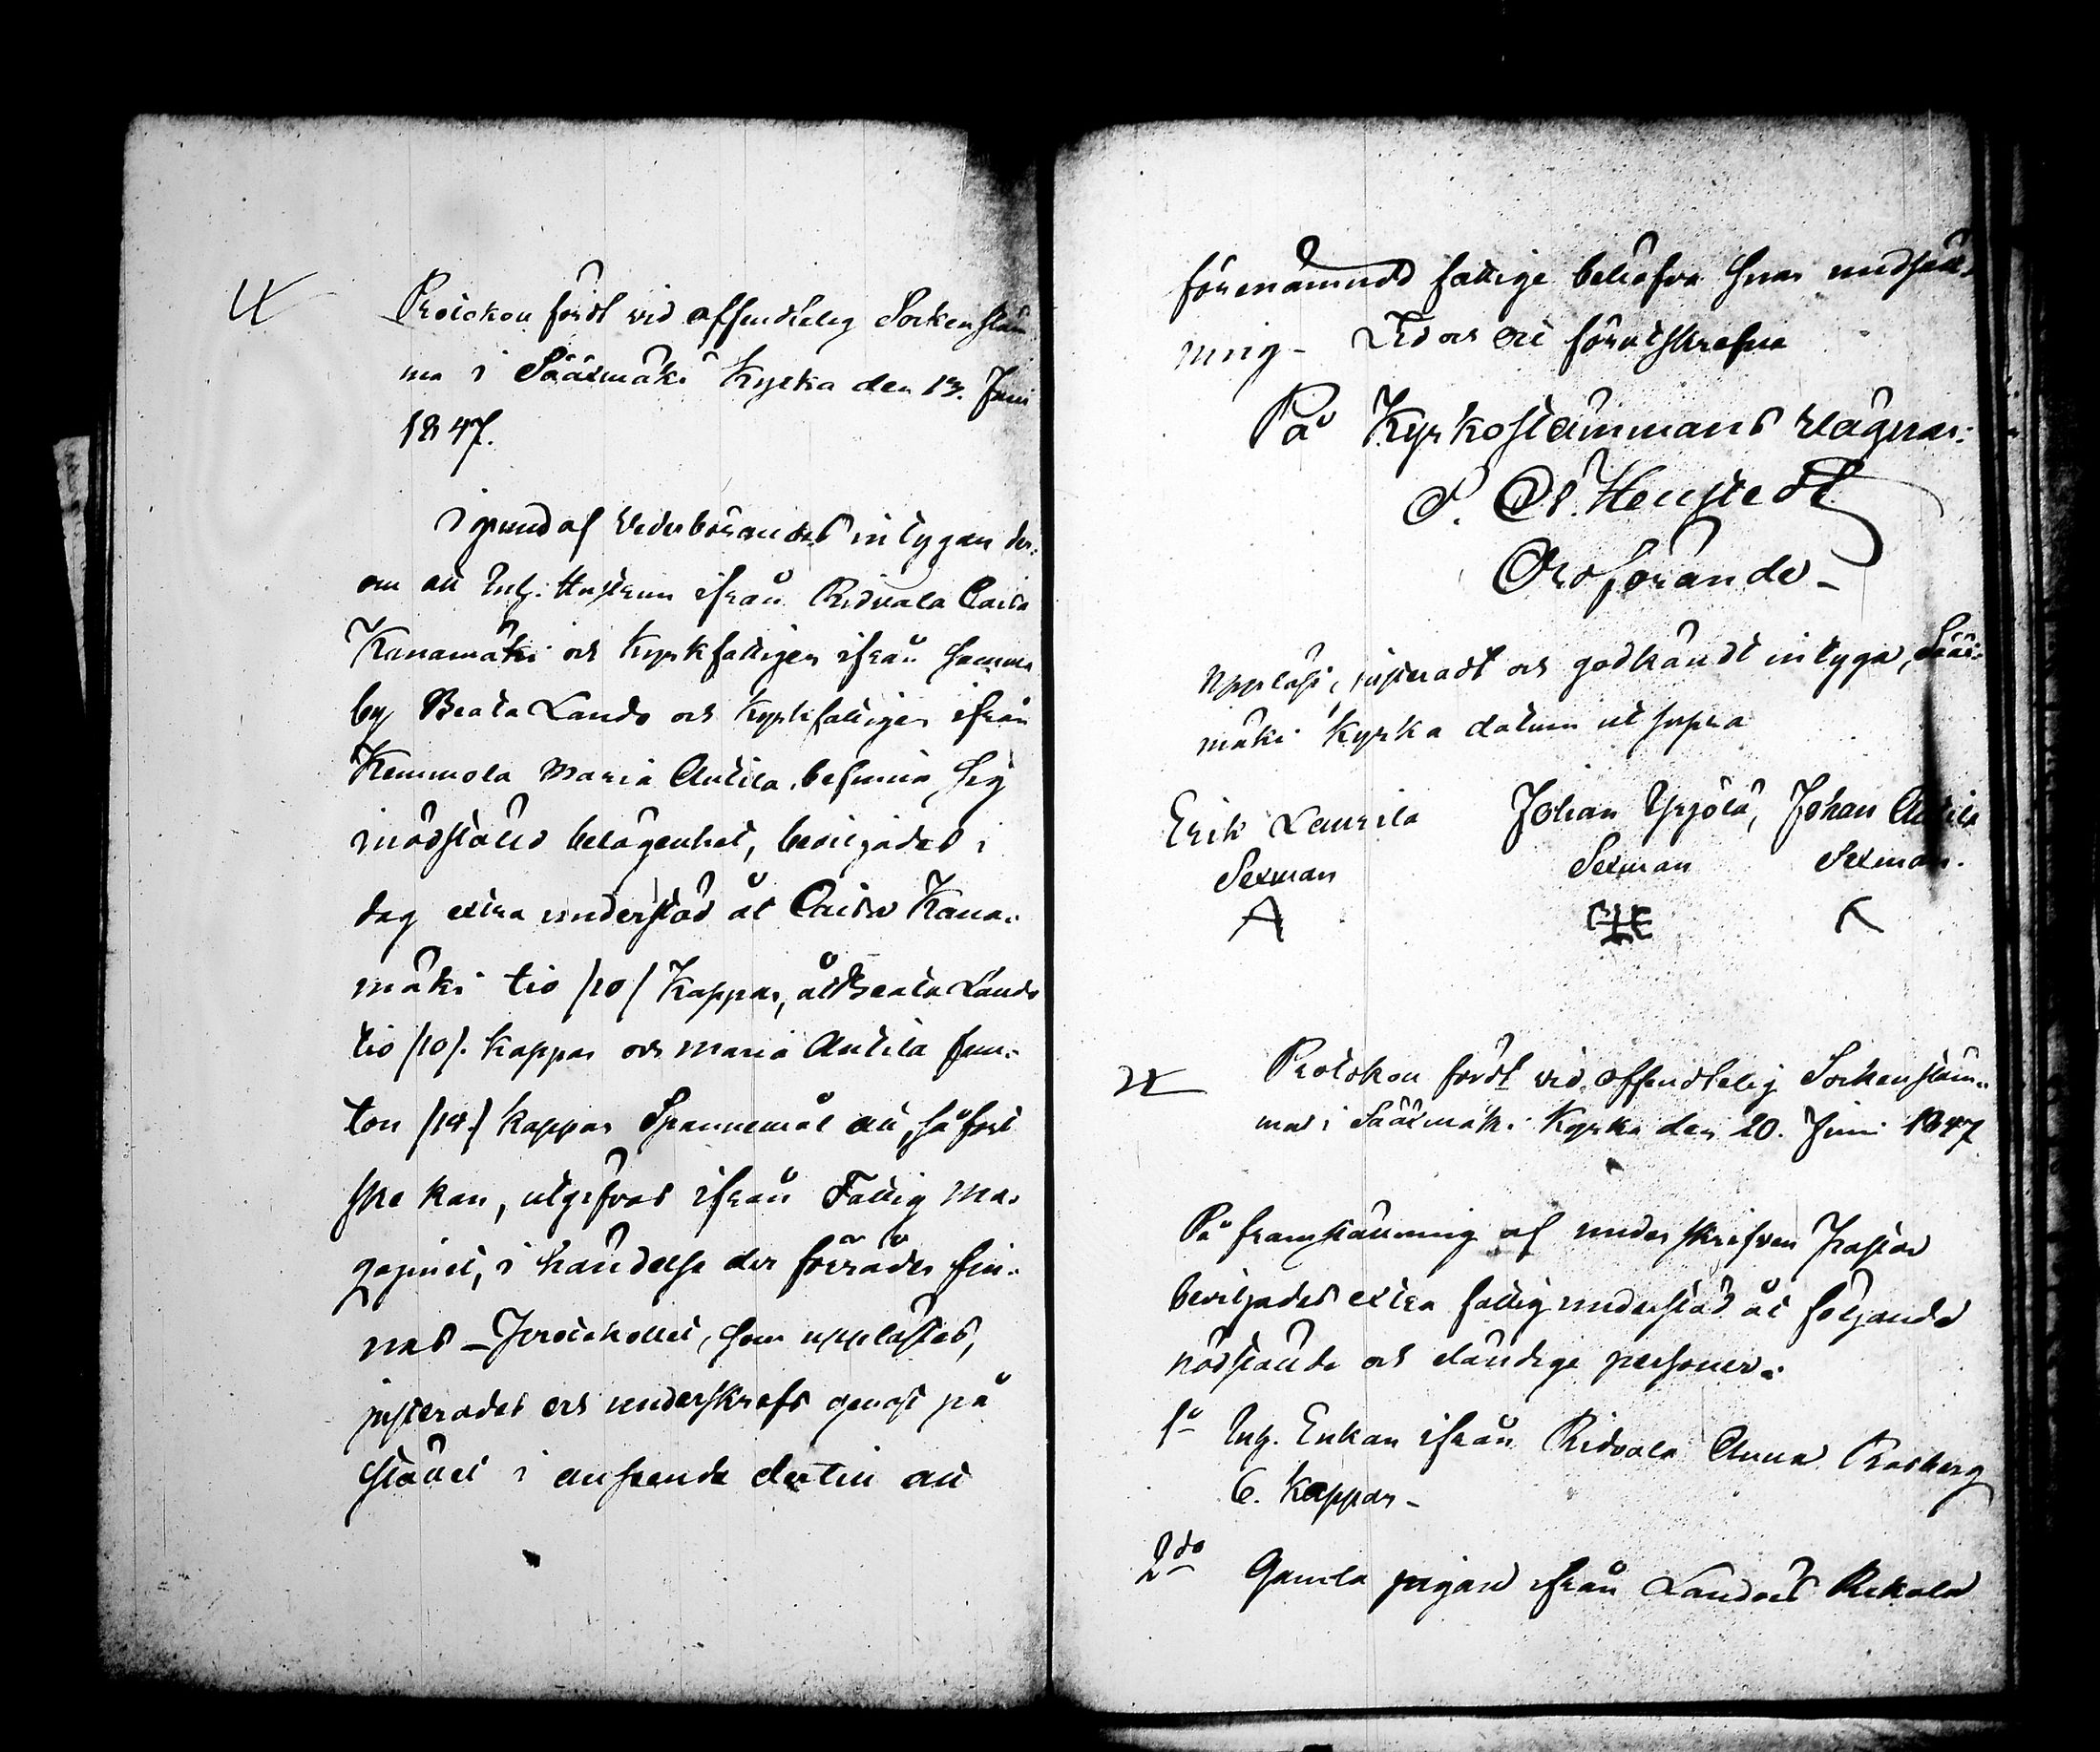 Protokoll fördt vid offendtelig Sockenstäm
ma i Sääxmäki Kyrka den 13. Juni
1847.
I grund af vederbörandes intygan der-
om att Inh. Hustrun ifrån Ridvala Caisa
Kanamäki och Kyrkfattigen ifrån samma
by Beata Lands och Kyrkfattigen ifrån
Kemmola Maria Antila, befinna sig
i nödstäld belägenhet, beviljades i
dag extra understöd åt Caisa Kana-
mäki tio /10/ Kappar, åt Beata Lands
tio /10/. Kappar och Maria Antila fem-
ton /15/ kappar Spannemål att, så fort
ske kan, utgifvas ifrån Fattig Ma-
gazinet, i händelse der förråder fin-
nes – Protokollet, som upplästes,
justerades och underskrefs genast på
stället i anseende dertill att
förenämndt fattige behöfva snar undsätt-
ning – Tid och ort förutskrefne
På Kyrkostämmans vägnar:
Ordförande –
Uppläst, justeradt och godkändt intyga, Sääx-
mäki Kyrka datum ut supra
Erik Laurila Johan Yrjölä, Johan Antila
Sexman Sexman Sexman.
Protokoll fördt vid offendtelig Sockenstäm-
ma i Sääxmäki Kyrka den 20. Juni 1847
På framställning af underskrifven Pastor
beviljades extra fattig understöd åt följande
nödstälde och eländige personer:
1o Inh. Enkan ifrån Ridvala Anna Rasberg
6. Kappar –
2do Gamla pigan ifrån Rekola